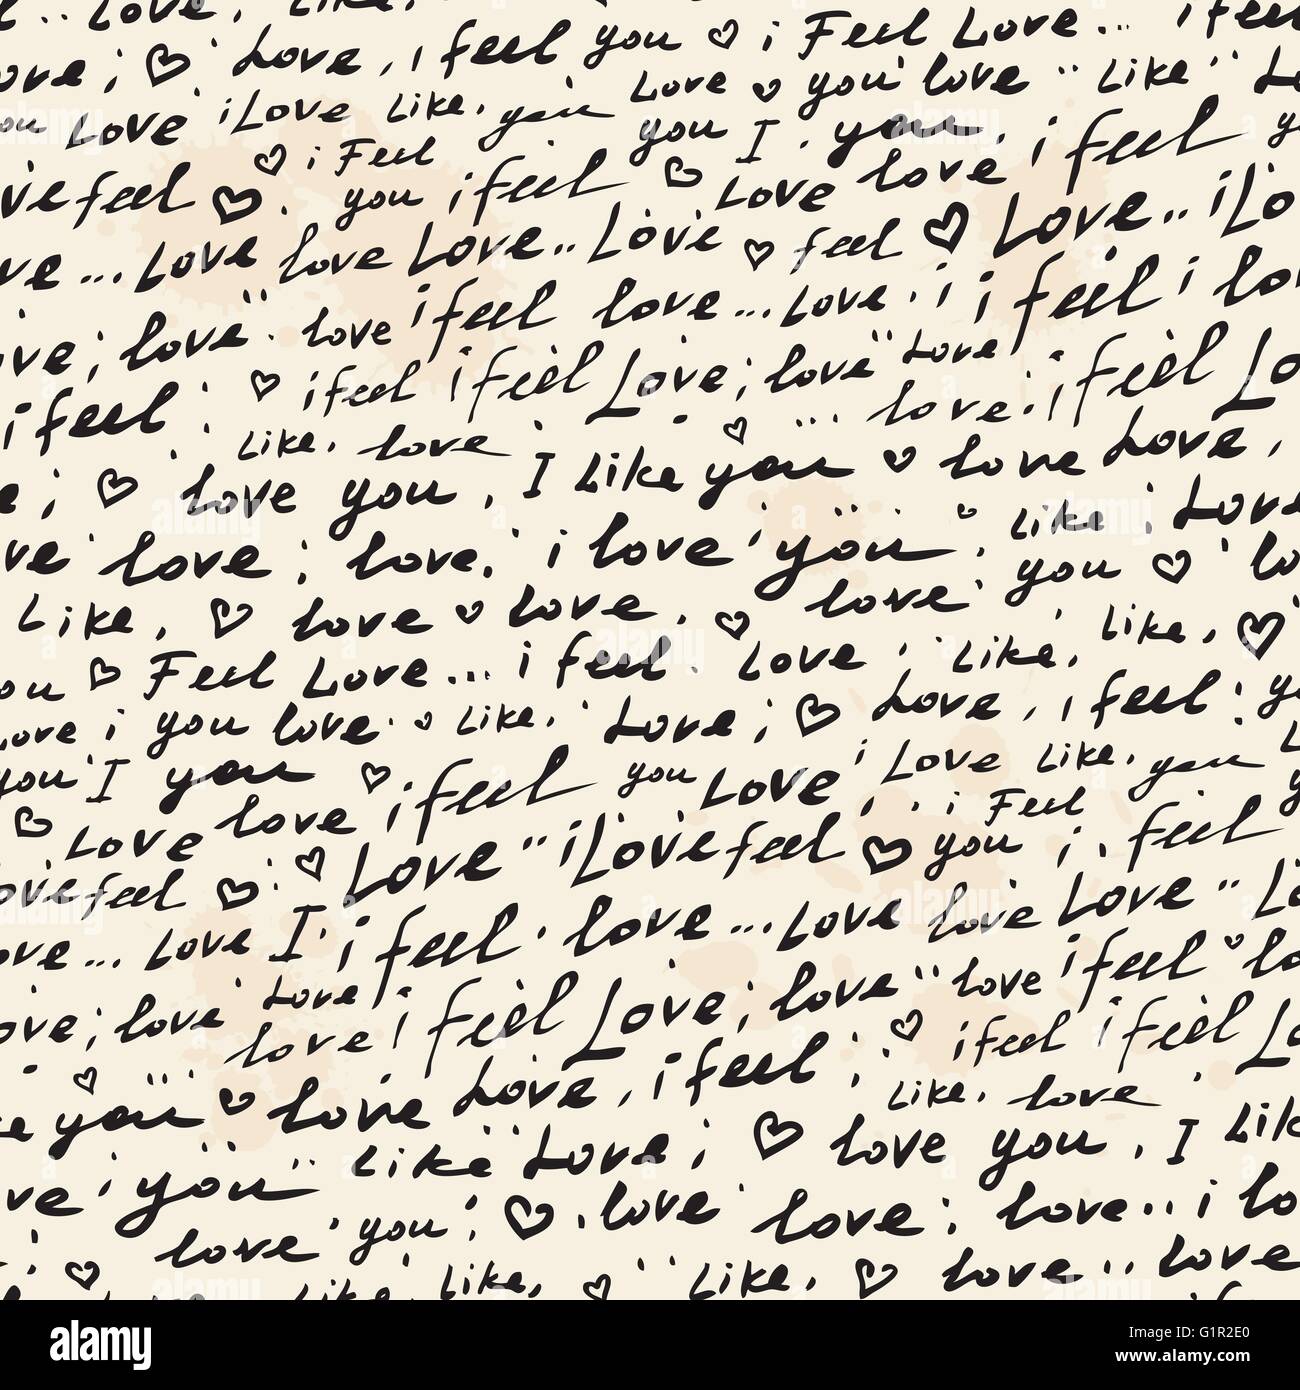 Love, Like,
ove; Love, i feel you i Feel Love... i feel
you Love i Love Like, you Love you love Like Lo
i Feel you I you, i feel
ve feel you i feel Love love
ve... Love love Love Love.. Love feel Love.. i Lo
ove; love love i feel love... Love i i feel i lo
i feel i feel i feel Love; love Love i feel Lo
Like, love love
e; love you, I Like you love Love,
ve love; love, i love you Like, Love
Like, love love, love you lo
ou Feel Love... i feel Love Like, Like,
Love i you love Like, Love; Love, i feel y
you I you i feel you Love, i Love Like, you
Love love i Feel
ove feel Love i Love feel you i feel
ove... Love I i feel love... Love love Love Lo
ove; love Love i feel Love; love love i feel lo
love i feel i feel Lo
e you love Love, i feel Like, love
ve you Like Love; love you, I Like
love you love love; love.. i lo
Like, Like, Like, love.. love
alamy
Image ID: G1R2E0
www.alamy.com